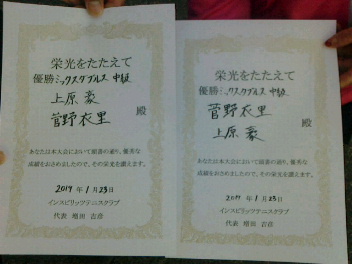 栄光をたたえて
優勝ミックスダブルス 中級
上原 豪
菅野衣里
殿
あなたは本大会において頭書の通り、優秀な
成績をおさめましたので、その栄光を讃えます。
2019 年 1 月 23 日
インスピリッツテニスクラブ
代表 増田 吉彦
栄光をたたえて
優勝ミックスダブルス 中級
菅野衣里
上原 豪
殿
あなたは本大会において頭書の通り、優秀な
成績をおさめましたので、その栄光を讃えます。
2019 年 1 月 23 日
インスピリッツテニスクラブ
代表 増田 吉彦